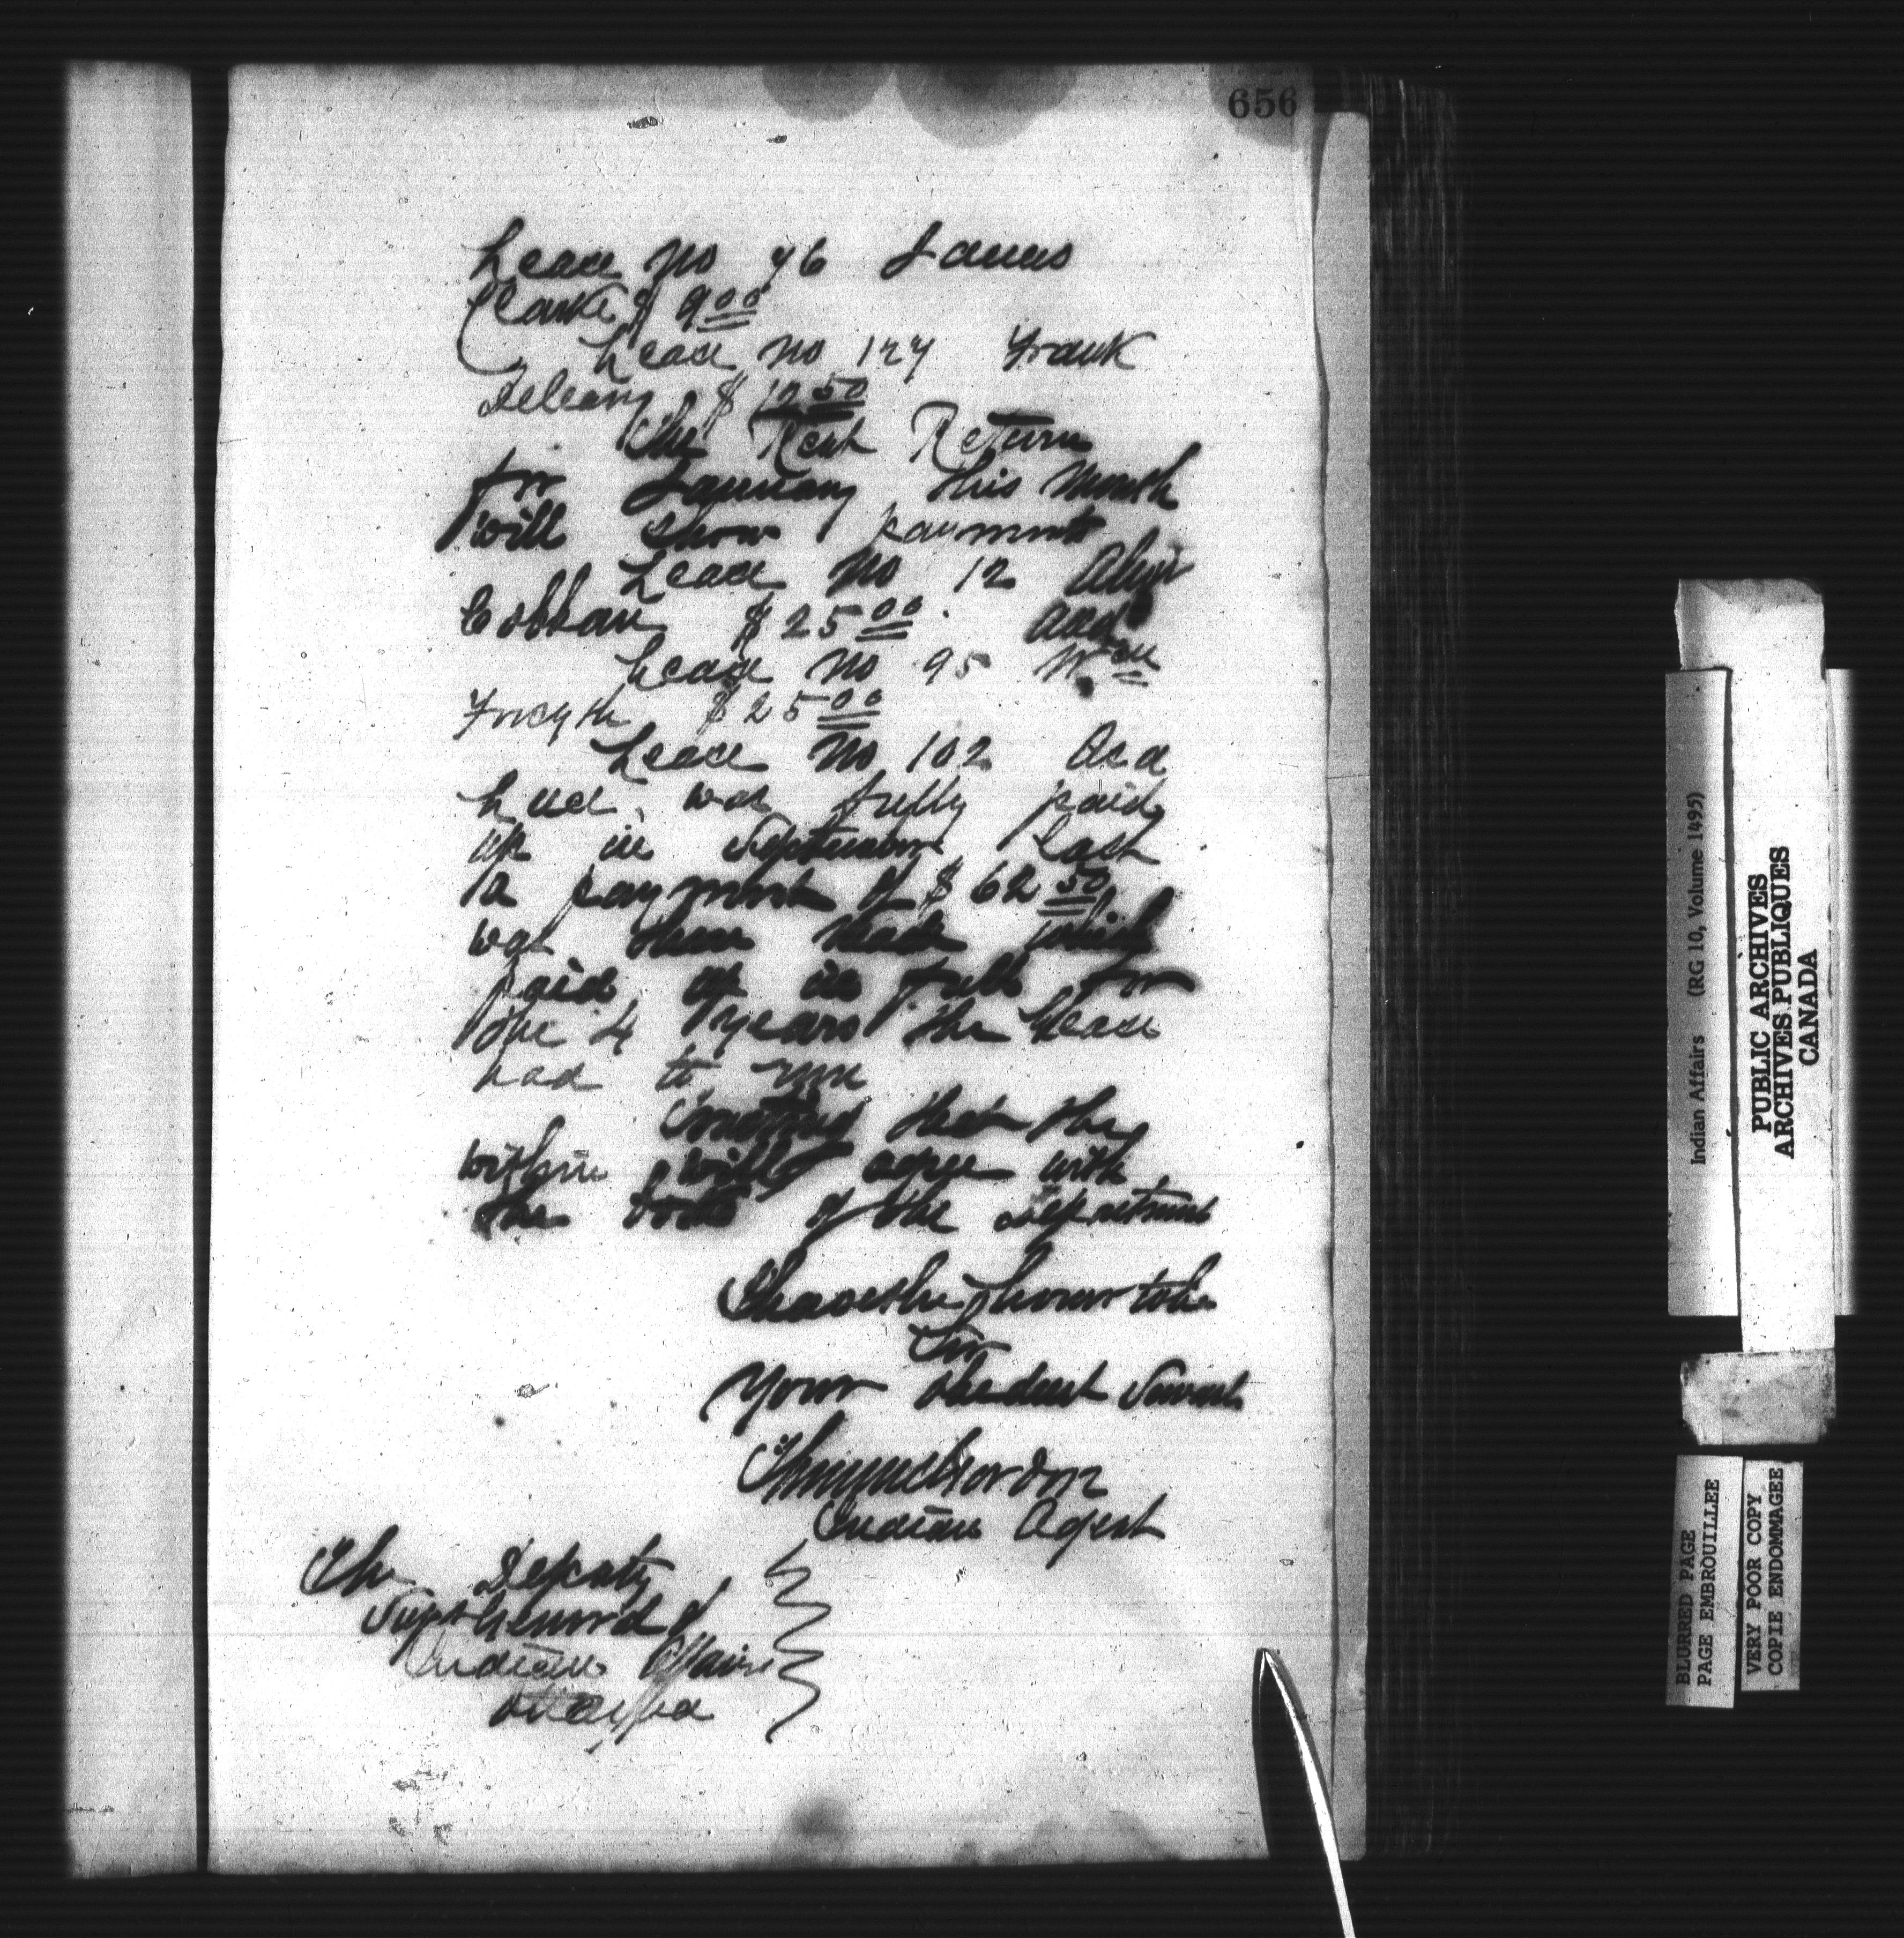 656
Lease No 76 James
Clarke $9.00
Lease No 127 Frank
Deleary $12.50
The Rent Return
for January this month
will show payments
Lease No 12
Cobban $25.00 and
Lease No 95 Wm
Forsyth $25.00
Lease No 102
was fully paid
up in September last
a payment of $62.50
was then made which
paid up in full for
the 4 years the lease
had to run
that the
within will agree with
the books of the Department
I have the honor to be
Sir
Your obedient Servant
Indian Agent
The Deputy
Supt General of
Indian Affairs
Ottawa
Indian Affairs (RG 10, Volume 1495)
PUBLIC ARCHIVES
ARCHIVES PUBLIQUES
CANADA
BLURRED PAGE
PAGE EMBROUILLEE
VERY POOR COPY
COPIE ENDOMMAGEE